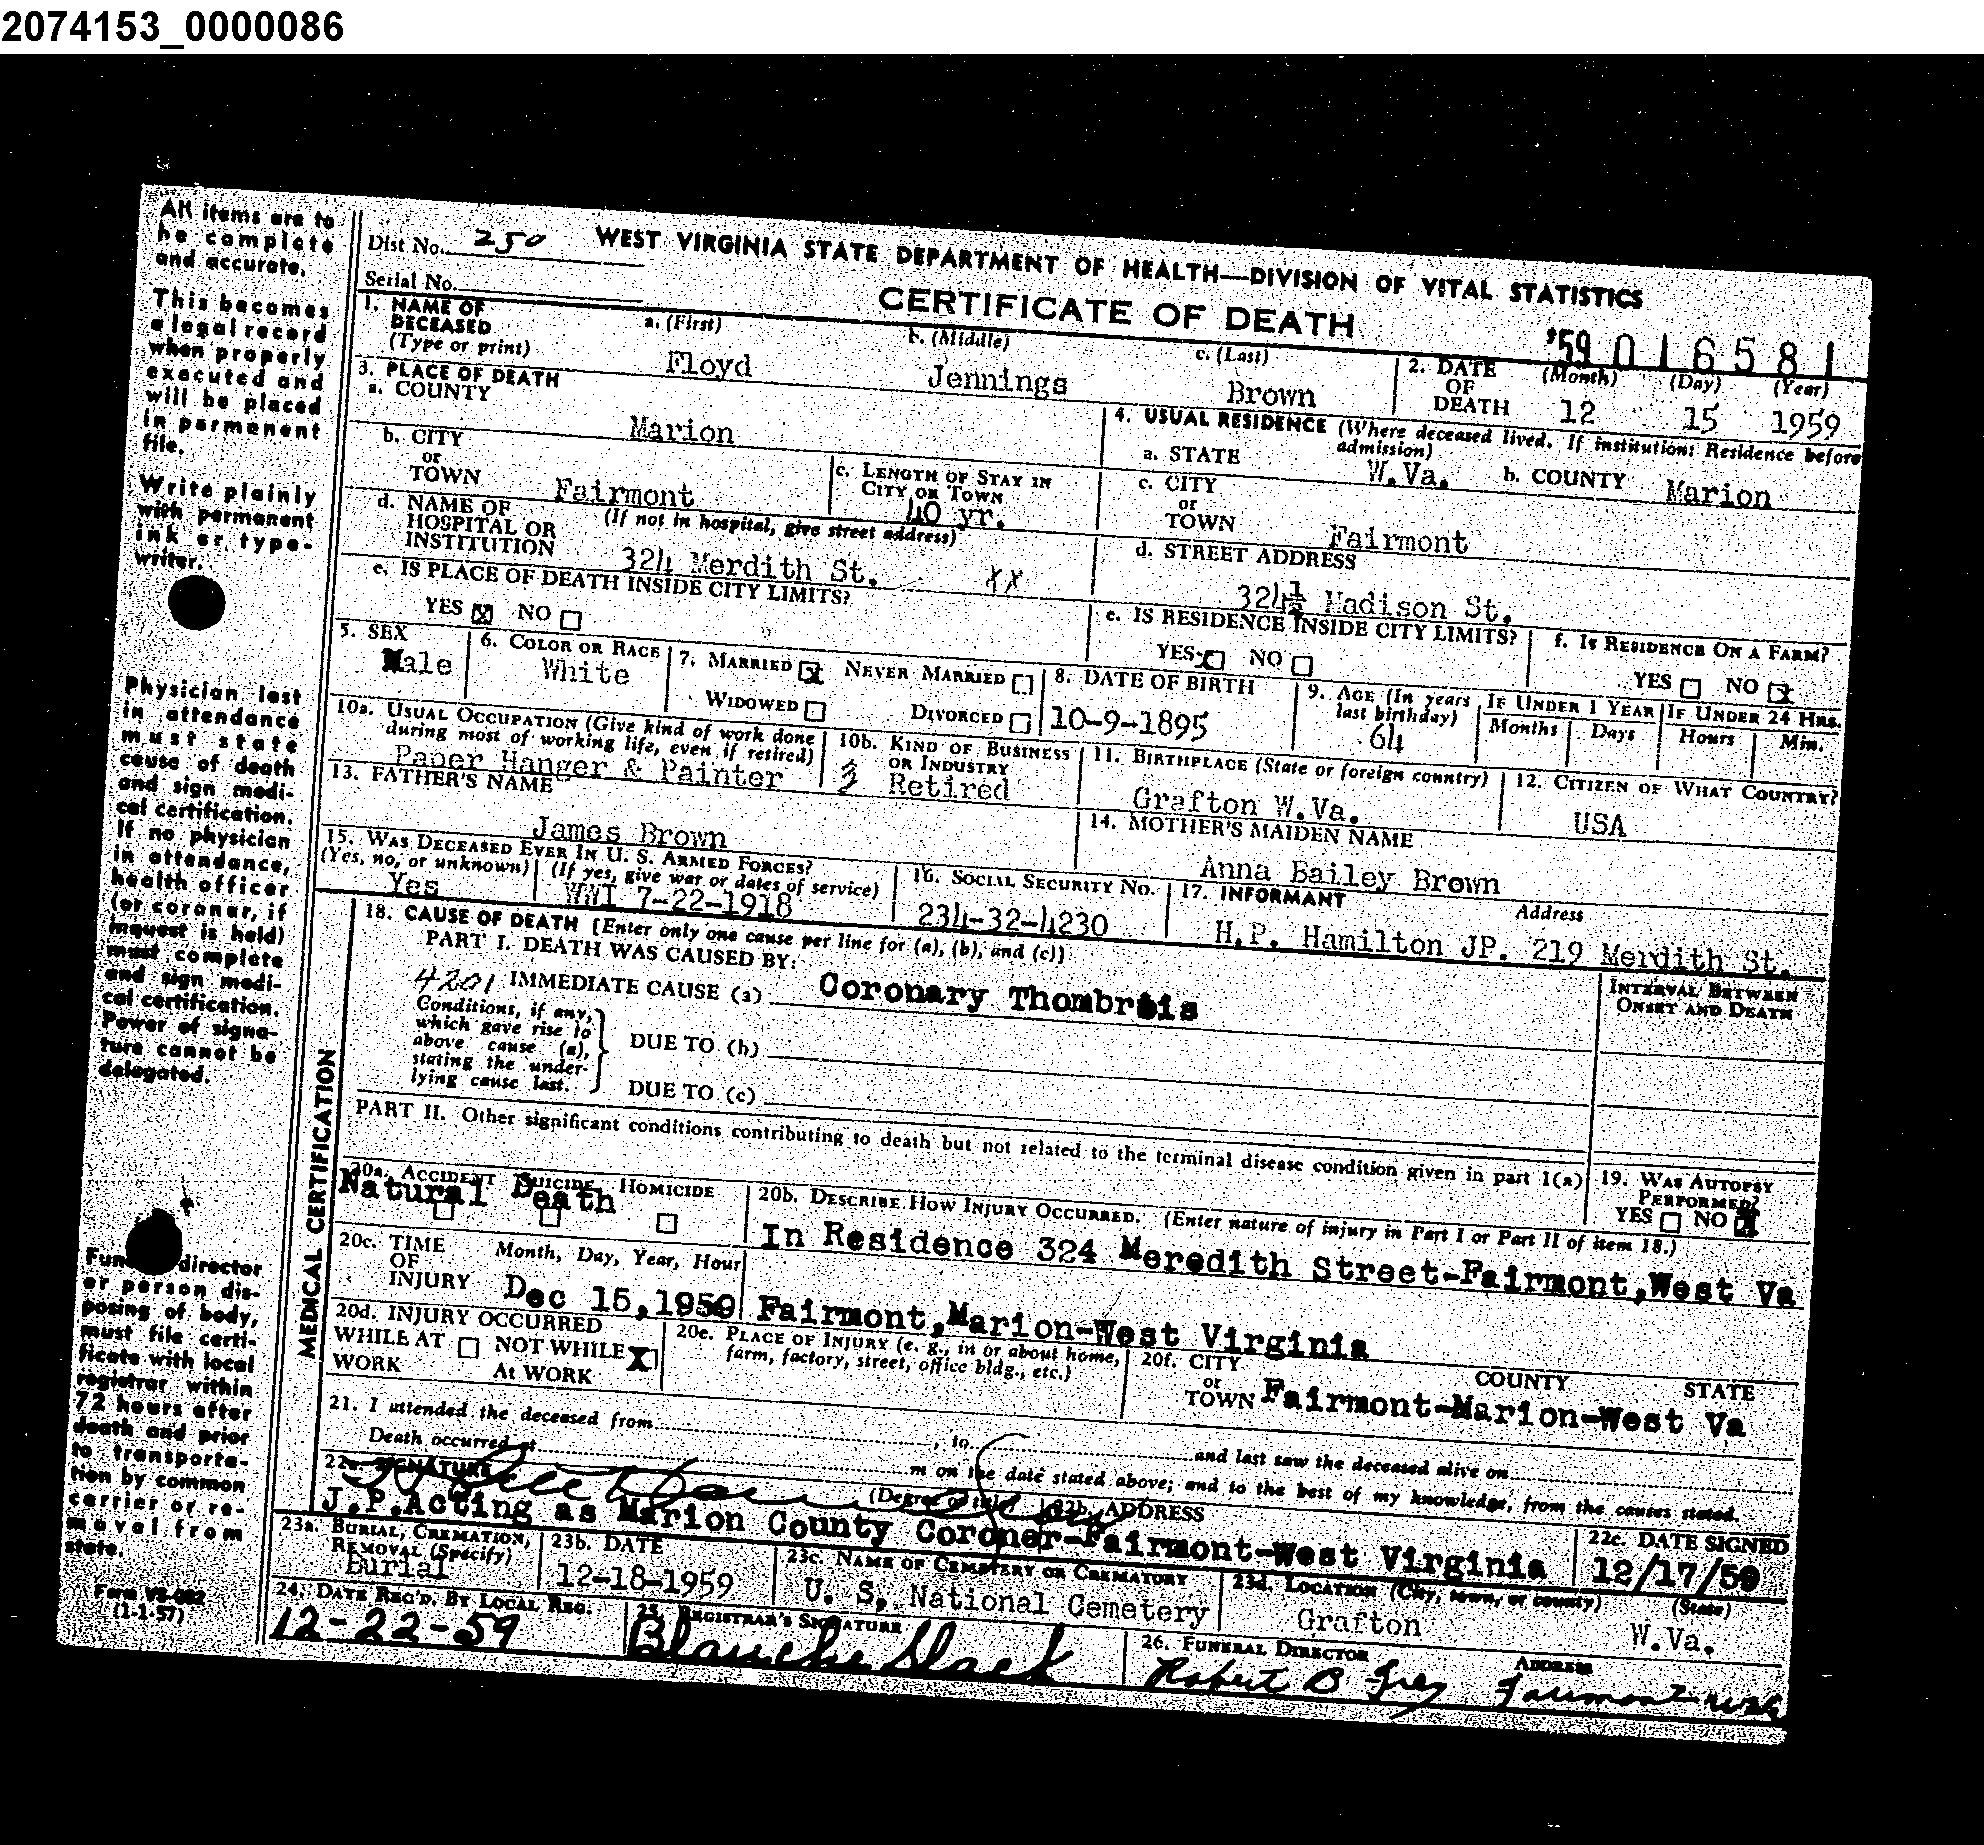 2074153_0000086
All items are to
be complete
and accurate.
This becomes
a legal record
when properly
executed and
will be placed
in permanent
file.
Write plainly
with permanent
ink or type-
writer.
Physician last
in attendance
must state
cause of death
and sign medi-
cal certification.
If no physician
in attendance,
health officer
(or coroner, if
inquest is held)
must complete
and sign medi-
cal certification.
Power of signa-
ture cannot be
delegated.
director
or person dis-
posing of body,
must file certi-
ficate with local
registrar within
72 hours after
death and prior
to transporta-
tion by common
carrier or re-
moval from
state.
Form VS-002
(1-1-57)
Dist No. 250 WEST VIRGINIA STATE DEPARTMENT OF HEALTH—DIVISION OF VITAL STATISTICS
Serial No.
CERTIFICATE OF DEATH
'59 016581
1. NAME OF DECEASED (Type or print) a. (First) Floyd b. (Middle) Jennings c. (Last) Brown
2. DATE OF DEATH (Month) 12 (Day) 15 (Year) 1959
3. PLACE OF DEATH
a. COUNTY Marion
b. CITY or TOWN Fairmont
c. LENGTH OF STAY IN CITY OR TOWN 40 yr.
d. NAME OF HOSPITAL OR INSTITUTION (If not in hospital, give street address) 324 Merdith St. xx
e. IS PLACE OF DEATH INSIDE CITY LIMITS?
YES x NO
4. USUAL RESIDENCE (Where deceased lived. If institution: Residence before admission)
a. STATE W.Va. b. COUNTY Marion
c. CITY or TOWN Fairmont
d. STREET ADDRESS 324½ Madison St.
e. IS RESIDENCE INSIDE CITY LIMITS?
YES x NO
f. IS RESIDENCE ON A FARM?
YES NO x
5. SEX Male
6. COLOR OR RACE White
7. MARRIED x NEVER MARRIED
WIDOWED DIVORCED
8. DATE OF BIRTH 10-9-1895
9. AGE (In years last birthday) 64
IF UNDER 1 YEAR Months Days
IF UNDER 24 HRS. Hours Min.
10a. USUAL OCCUPATION (Give kind of work done during most of working life, even if retired) Paper Hanger & Painter
10b. KIND OF BUSINESS OR INDUSTRY 3 Retired
11. BIRTHPLACE (State or foreign country) Grafton W.Va.
12. CITIZEN OF WHAT COUNTRY? USA
13. FATHER'S NAME James Brown
14. MOTHER'S MAIDEN NAME Anna Bailey Brown
15. WAS DECEASED EVER IN U. S. ARMED FORCES?
(Yes, no, or unknown) Yes (If yes, give war or dates of service) WWI 7-22-1918
16. SOCIAL SECURITY NO. 234-32-4230
17. INFORMANT Address
H.P. Hamilton JP. 219 Merdith St.
MEDICAL CERTIFICATION
18. CAUSE OF DEATH [Enter only one cause per line for (a), (b), and (c)]
PART I. DEATH WAS CAUSED BY:
4201 IMMEDIATE CAUSE (a) Coronary Thombrsis
Conditions, if any, which gave rise to above cause (a), stating the under-lying cause last.
DUE TO (b)
DUE TO (c)
INTERVAL BETWEEN ONSET AND DEATH
PART II. Other significant conditions contributing to death but not related to the terminal disease condition given in part 1(a)
19. WAS AUTOPSY PERFORMED?
YES NO x
20a. ACCIDENT SUICIDE HOMICIDE
Natural Death
20b. DESCRIBE HOW INJURY OCCURRED. (Enter nature of injury in Part I or Part II of item 18.)
In Residence 324 Meredith Street-Fairmont,West Va
20c. TIME OF INJURY Month, Day, Year, Hour
Dec 15,1959 Fairmont,Marion-West Virginia
20d. INJURY OCCURRED
WHILE AT WORK NOT WHILE At WORK X
20e. PLACE OF INJURY (e. g., in or about home, farm, factory, street, office bldg., etc.)
20f. CITY or TOWN COUNTY STATE
Fairmont-Marion-West Va
21. I attended the deceased from , to and last saw the deceased alive on
Death occurred at m on the date stated above; and to the best of my knowledge, from the causes stated.
22a. SIGNATURE (Degree or title) 22b. ADDRESS
J.P.Acting as Marion County Coroner-Fairmont-West Virginia
22c. DATE SIGNED 12/17/59
23a. BURIAL, CREMATION, REMOVAL (Specify) Burial
23b. DATE 12-18-1959
23c. NAME OF CEMETERY OR CREMATORY U. S. National Cemetery
23d. LOCATION (City, town, or county) (State)
Grafton W.Va.
24. DATE REC'D. BY LOCAL REG. 12-22-59
25. REGISTRAR'S SIGNATURE Blanche Slack
26. FUNERAL DIRECTOR ADDRESS
Robert B Frey Fairmont